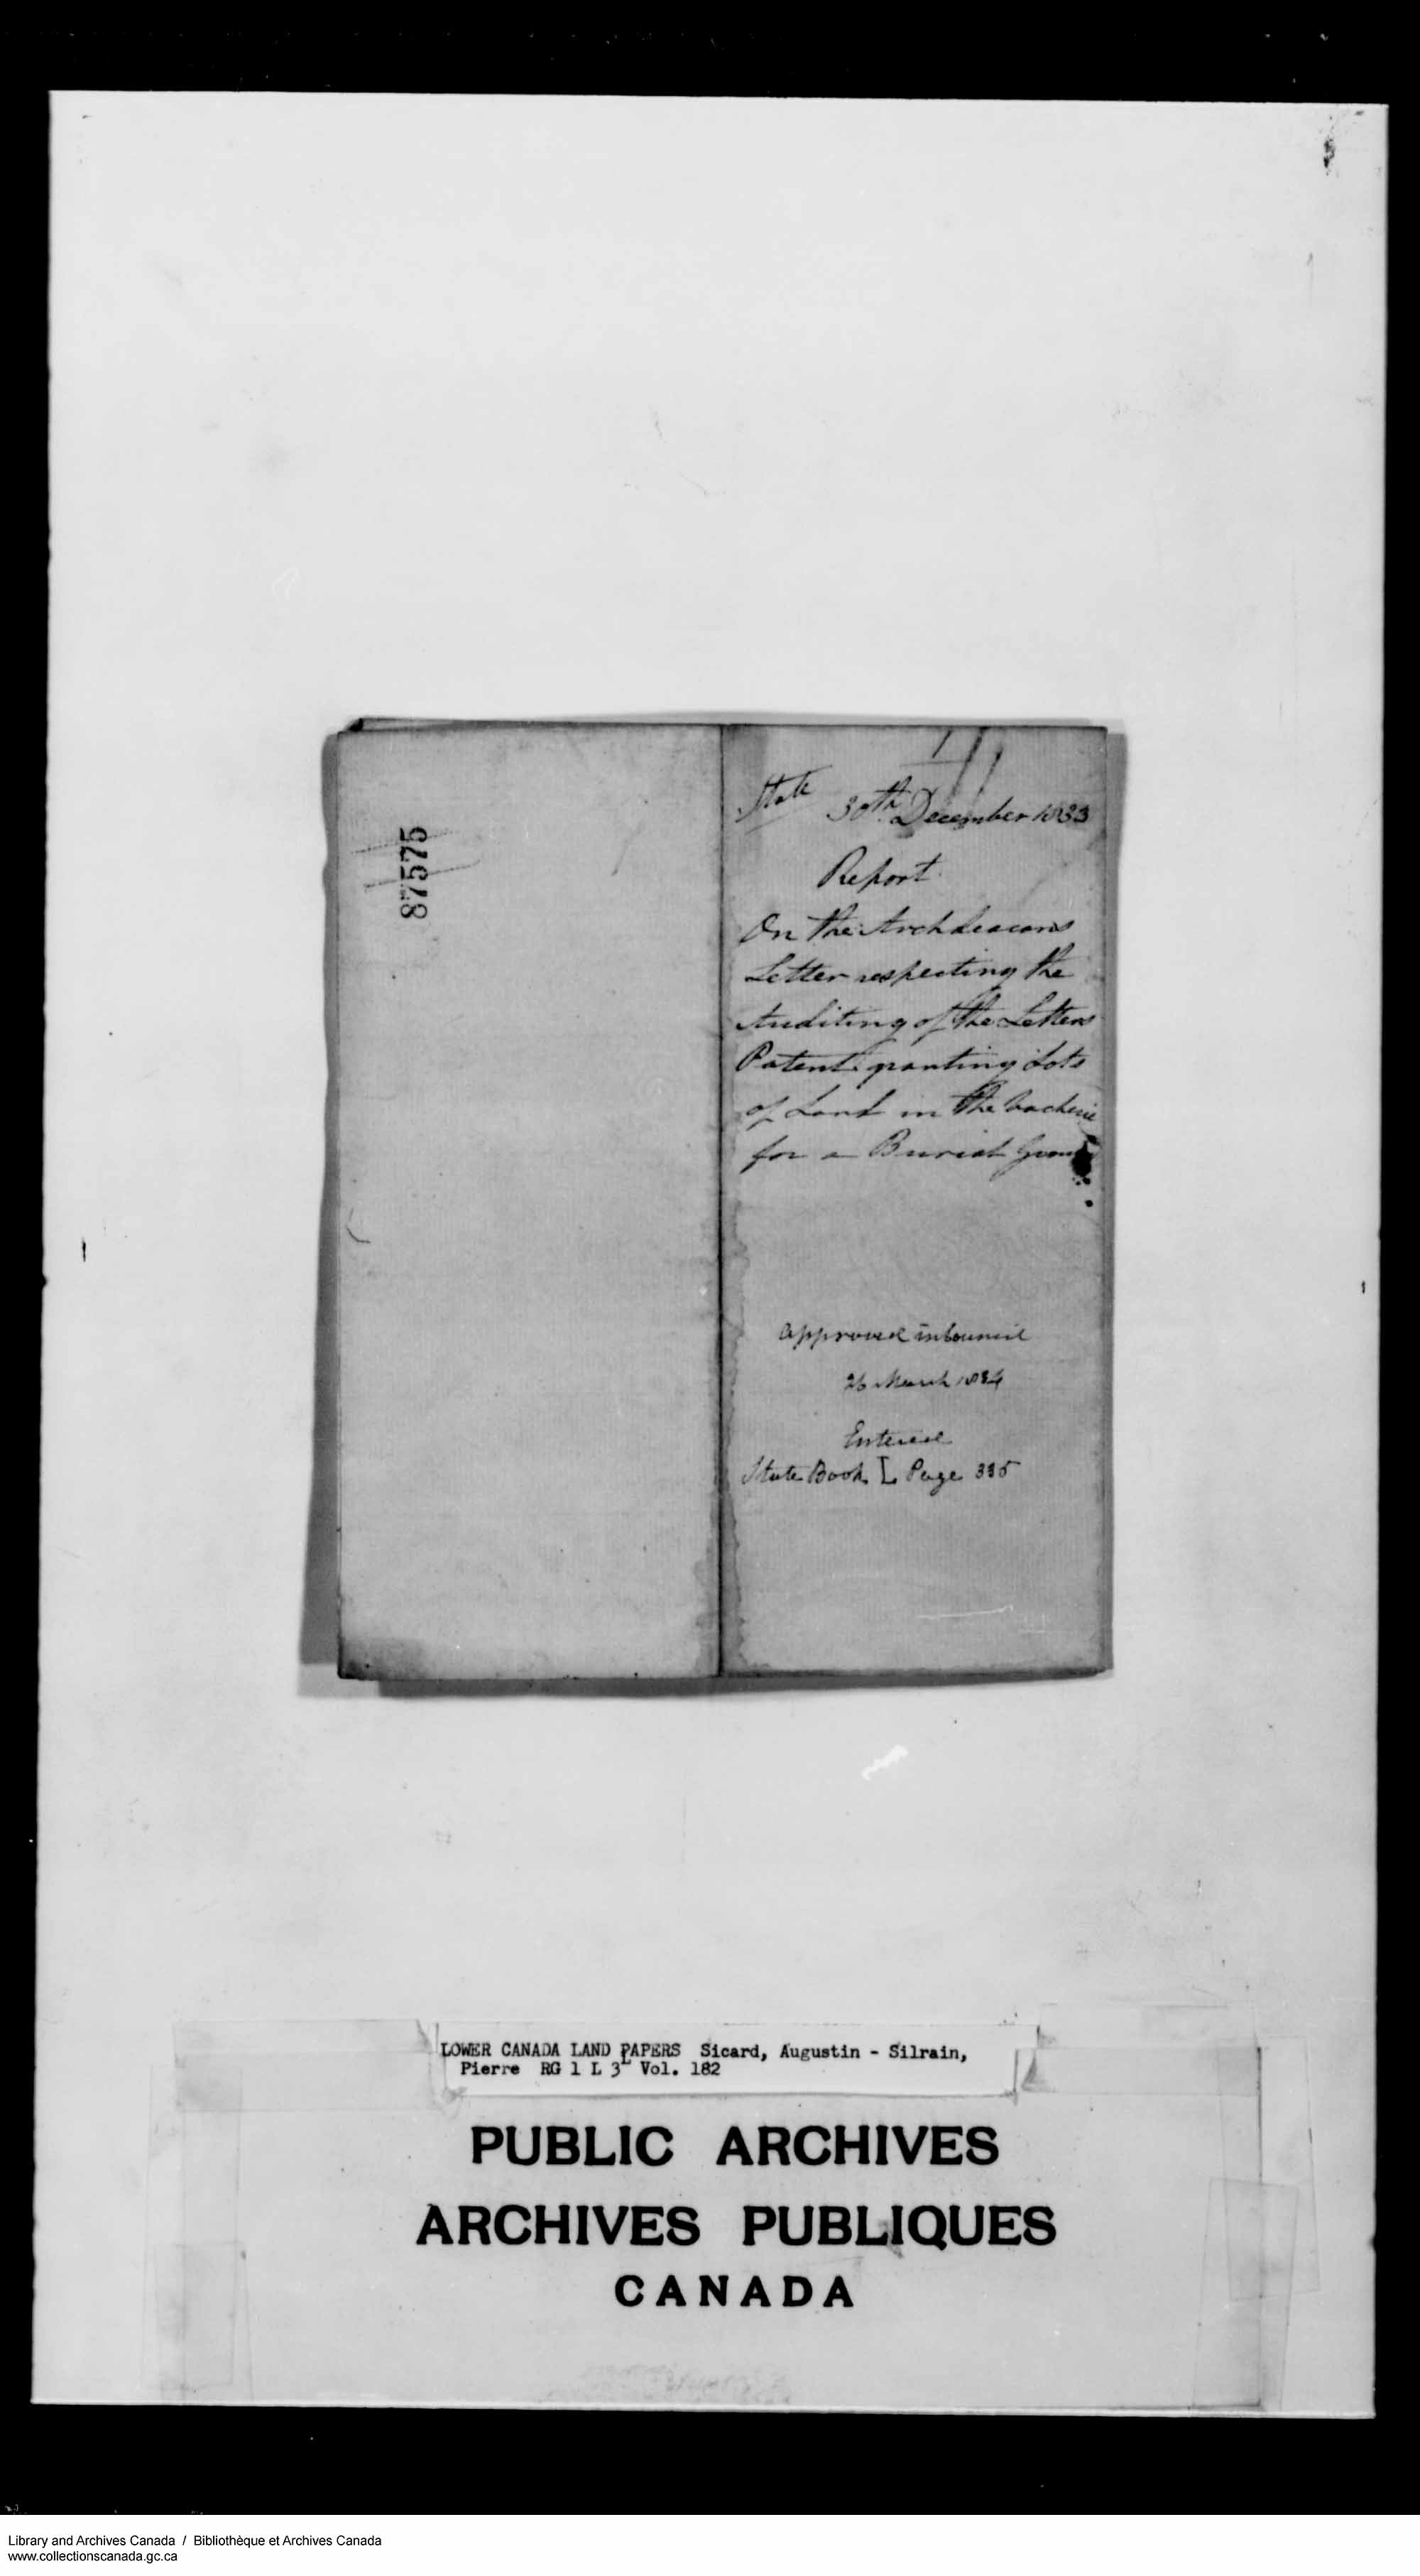 87575
State
30th December 1833
Report
On the Archdeacons
Letter respecting the
Auditing of the Letters
Patent granting Lots
of Land in the Vacherie
for a Burial Ground
Approved in Council
26 March 1834
Entered
State Book L Page 335
LOWER CANADA LAND PAPERS Sicard, Augustin - Silrain,
Pierre RG 1 L 3L Vol. 182
PUBLIC ARCHIVES
ARCHIVES PUBLIQUES
CANADA
Library and Archives Canada / Bibliothèque et Archives Canada
www.collectionscanada.gc.ca